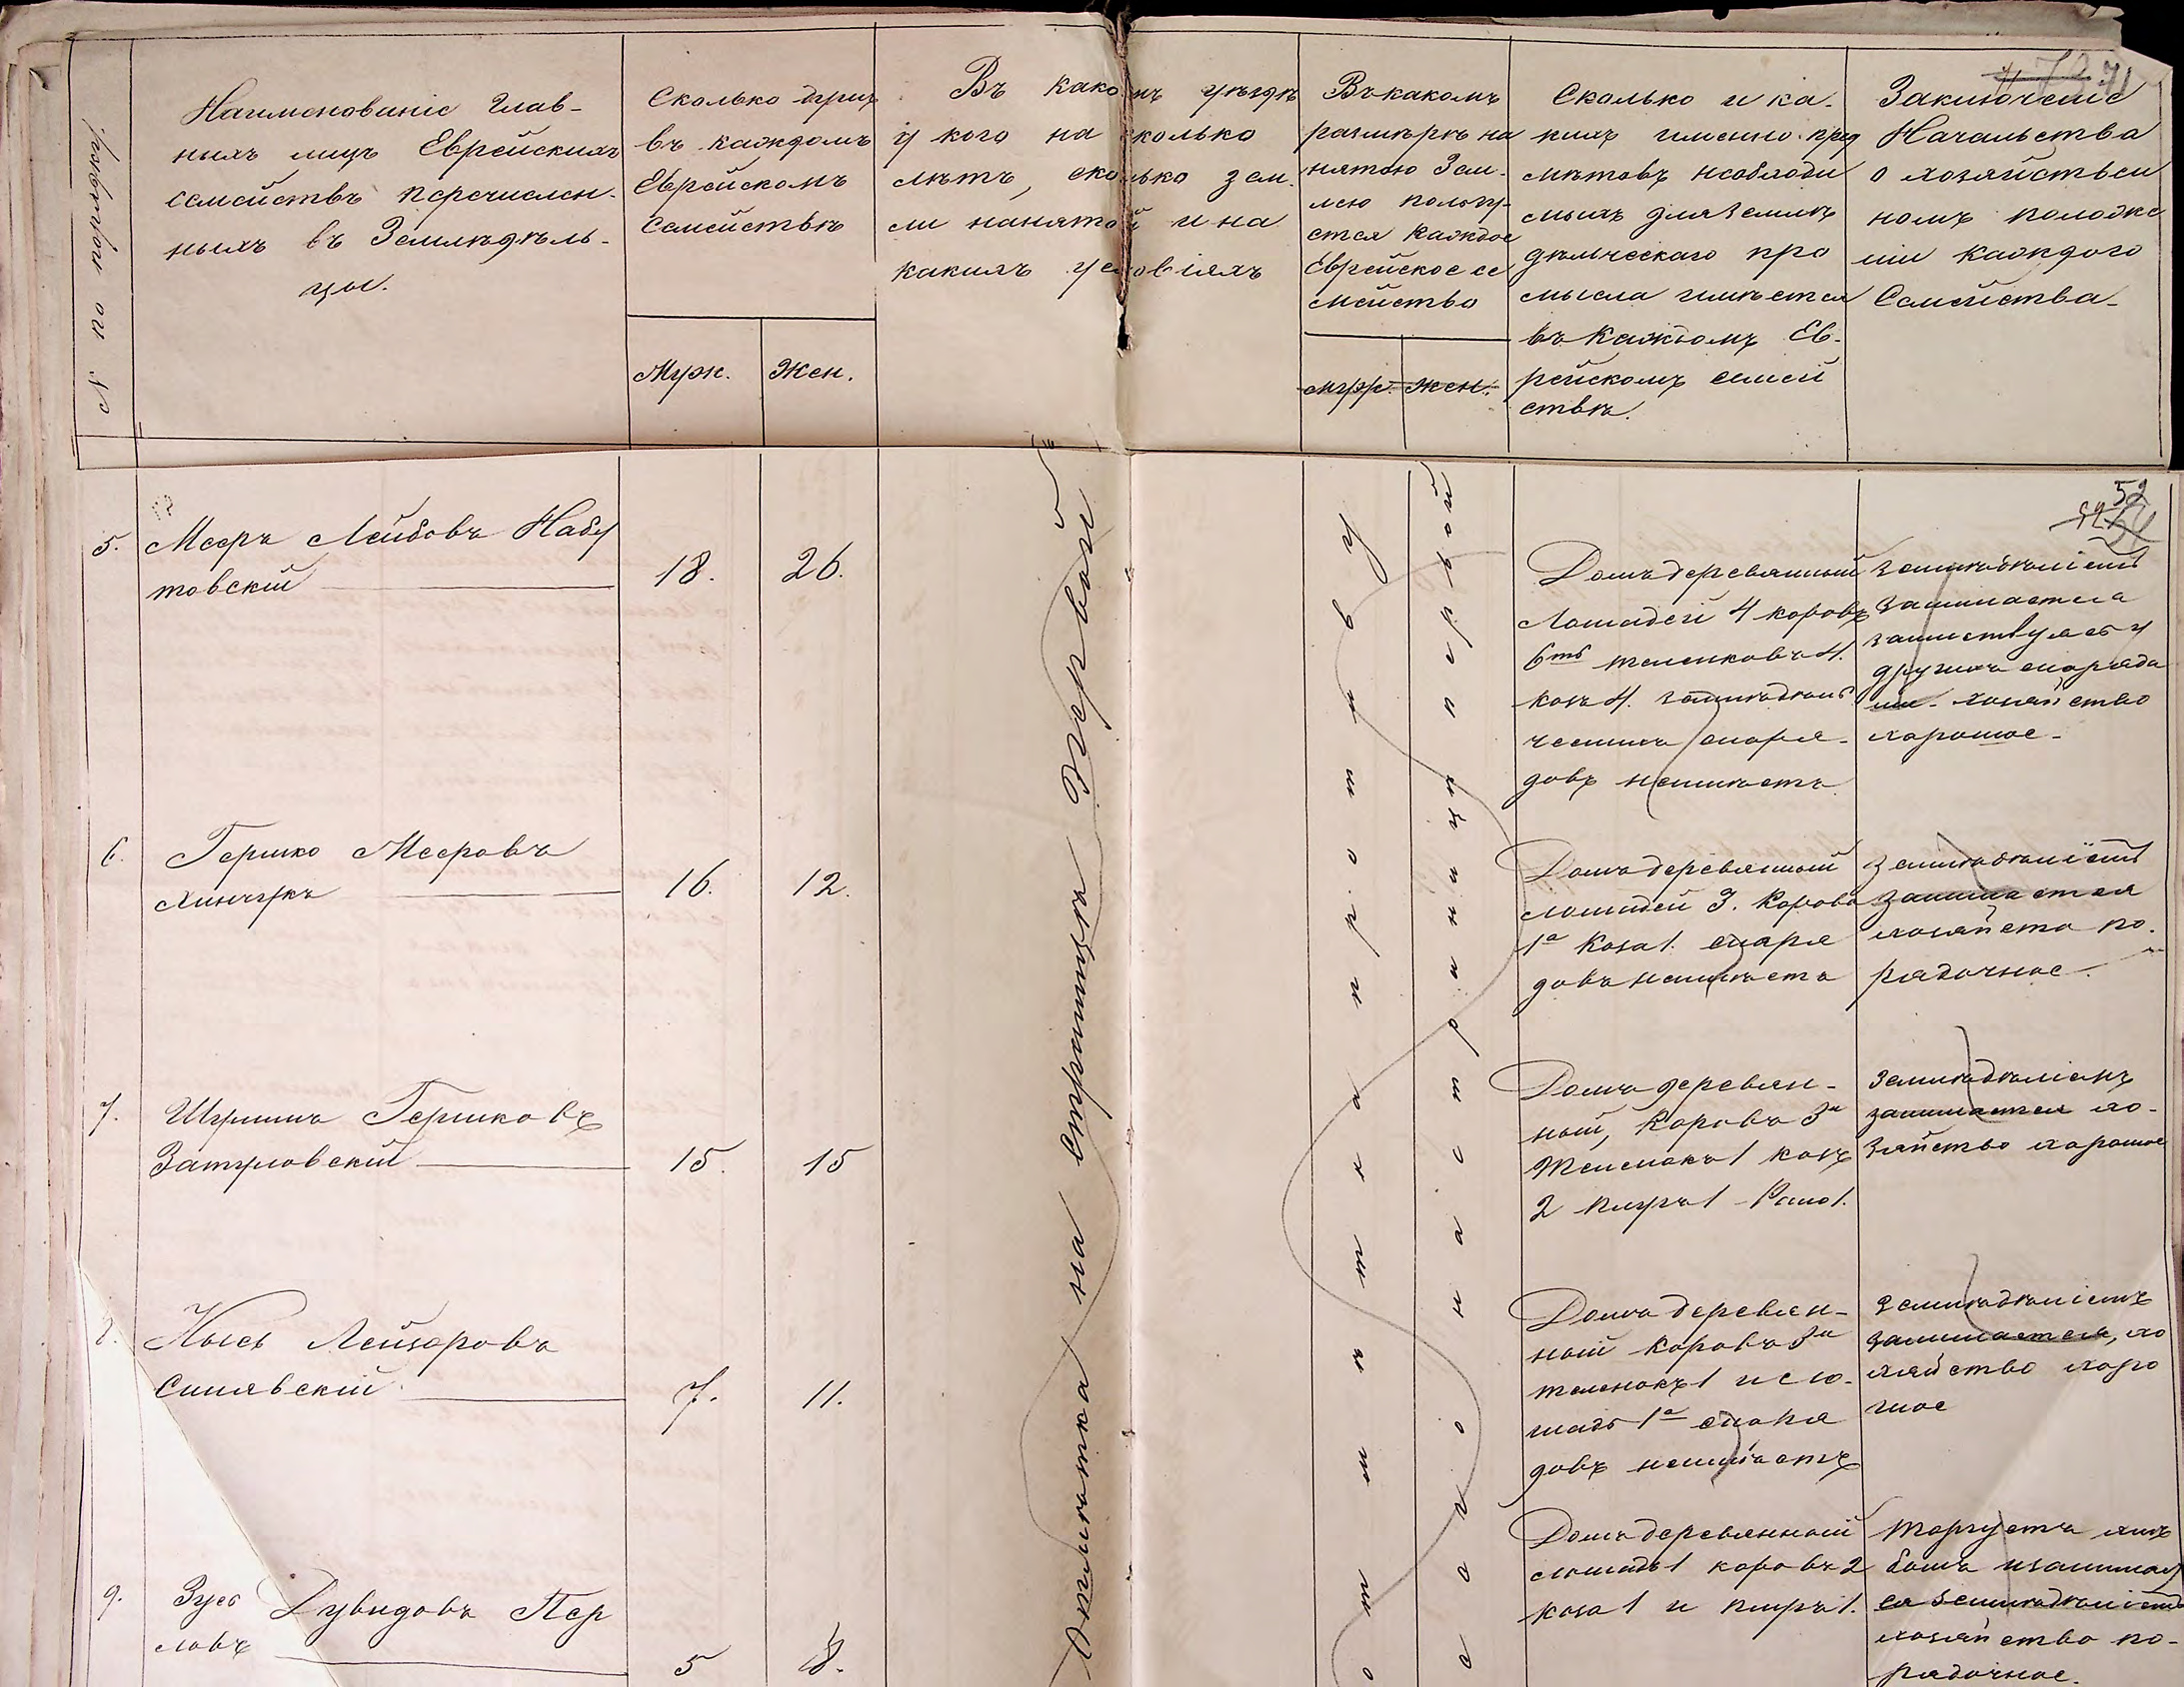 № по порядку
Наименованіе глав-
ныхъ лицъ Еврейскихъ
семействъ перечислен-
ныхъ въ Земледѣль-
цы.
Сколько душъ
въ каждомъ
Еврейскомъ
Семействѣ
Муж. Жен.
Въ какомъ уѣздѣ
у кого на сколько
лѣтъ, сколько зем-
ли нанятой и на
какихъ условіяхъ
Въ какомъ
размѣрѣ на
нятою Зем-
лею польз-
ется каждое
Еврейское се
мейство
муж. жен.
Сколько и ка-
кихъ именно пред
мѣтовъ необходи
мыхъ для Землѣ
дѣльческаго про
мысла имѣется
въ каждомъ Ев-
рейскомъ семей
ствѣ.
71
Заключеніе
Начальства
о хозяйствен
номъ положе
ніи каждого
Семейства-
52
5. Мееръ Лейбовъ Набу
товскій
18. 26.
Домъ деревянный
Лошадей 4 коровъ
6ть теленковъ 4.
козъ 4. земледѣль
ческихъ снаря-
довъ неимѣетъ
земледѣліемъ
занимается
заимствуясь у
другихъ снаряда
ми- хозяйство
хорошое-
6. Гершко Мееровъ
16. 12.
Домъ деревянный
лошадей 3. корова
1а коза 1. снаря
довъ неимѣетъ
земледѣліемъ
занимается
хозяйство по-
рядочное-
7. Шулимъ Гершковъ
Затуловскій
15. 15
Домъ деревян-
ный, коровъ 3и
теленокъ 1 козъ
2 плугъ 1 Рало 1.
земледѣліемъ
занимается хо-
зяйство хорошое
8. Нысь Лейзоровъ
Синявскій
7. 11.
Домъ деревян-
ный коровъ 3и
теленокъ 1 и ло-
шадь 1а снаря
довъ неимѣетъ
земледѣліемъ
занимается, хо
зяйство хоро
шое
9. Зусь Дувидовъ Пер
ловъ
5 8.
Домъ деревянный
лошадь 1 коровъ 2
коза 1 и плугъ 1.
торгуетъ хлѣ
бомъ изанимает
ся земледѣліемъ
хозяйство по-
рядочное.
отмѣтка на страницѣ первой
отмѣтка противу
сего на страницѣ первой